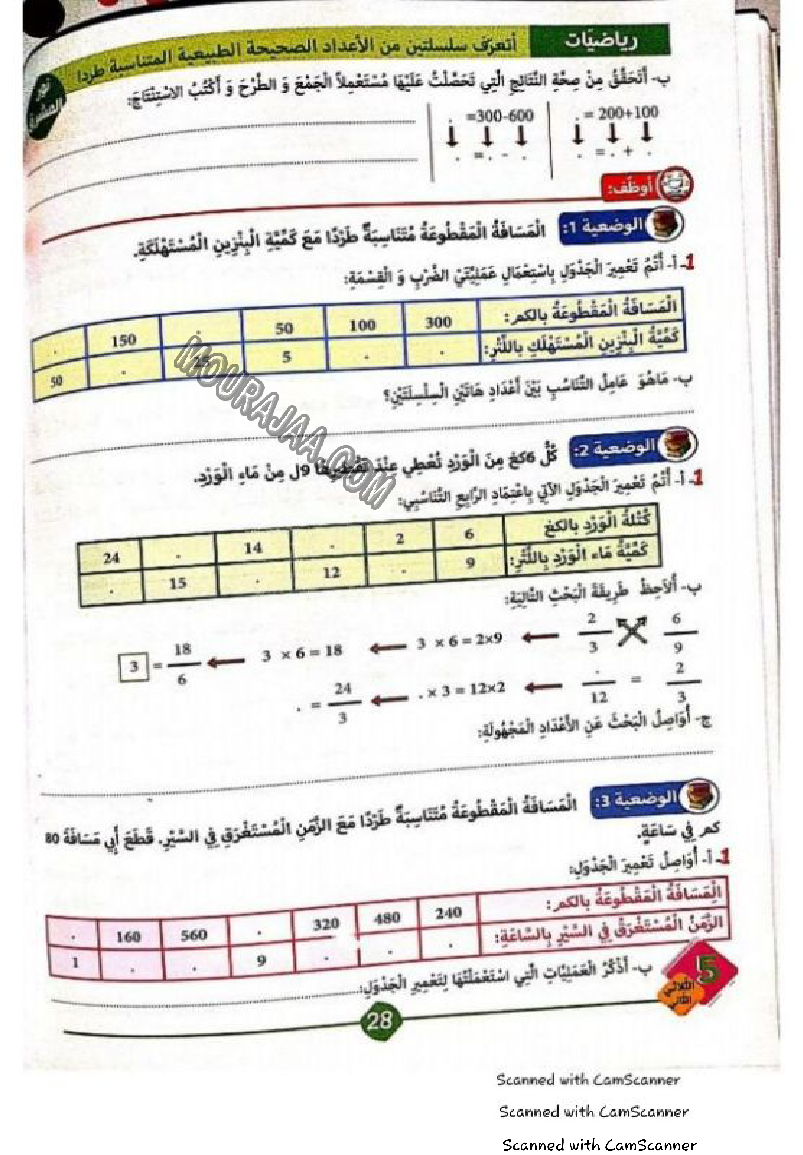 رياضيّات
أتعرّف سلسلتين من الأعداد الصحيحة الطبيعية المتناسبة طردا
ب- أَتَحَقَّقُ مِنْ صِحَّةِ النَّتَائِجِ الَّتِي تَحَصَّلْتُ عَلَيْهَا مُسْتَعْمِلاً الْجَمْعَ وَ الطَّرْحَ وَ أَكْتُبُ الاسْتِنْتَاجَ:
. = 200+100
. =300-600
. = . + .
. =. - .
أوظّف:
الوضعية 1: الْمَسَافَةُ الْمَقْطُوعَةُ مُتَنَاسِبَةٌ طَرْدًا مَعَ كَمِّيَّةِ الْبِنْزِينِ الْمُسْتَهْلَكَةِ.
1- أ- أُتِمُّ تَعْمِيرَ الْجَدْوَلِ بِاسْتِعْمَالِ عَمَلِيَّتَيْ الضَّرْبِ وَ الْقِسْمَةِ:
الْمَسَافَةُ الْمَقْطُوعَةُ بالكم: 300 100 50 . 150 .
كَمِّيَّةُ الْبِنْزِينِ الْمُسْتَهْلَكِ بِاللّتْرِ: . . 5 25 . 50
ب- مَاهُوَ عَامِلُ التَّنَاسُبِ بَيْنَ أَعْدَادِ هَاتَيْنِ السِلْسِلَتَيْنِ؟
MOURAJAA.COM
الوضعية 2: كُلُّ 6كغ مِنَ الْوَرْدِ تُعْطِي عِنْدَ تَقْطِيرِهَا 9ل مِنْ مَاءِ الْوَرْدِ.
1- أ- أُتِمُّ تَعْمِيرَ الْجَدْوَلِ الآتِي بِاعْتِمَادِ الرَّابِعِ التَّنَاسُبِي:
كُتْلَةُ الْوَرْدِ بالكغ 6 2 . 14 . 24
كَمِّيَّةُ مَاءِ الْوَرْدِ بِاللّتْرِ: 9 . 12 . 15 .
ب- أُلَاحِظُ طَرِيقَةَ الْبَحْثِ التَّالِيَةِ:
6/9 2/3 3 × 6 = 2×9 3 × 6 = 18 18/6 = 3
2/3 = ./12 . × 3 = 12×2 24/3 = .
ج- أُوَاصِلُ الْبَحْثَ عَنِ الأَعْدَادِ الْمَجْهُولَةِ:
الوضعية 3: الْمَسَافَةُ الْمَقْطُوعَةُ مُتَنَاسِبَةٌ طَرْدًا مَعَ الزَّمَنِ الْمُسْتَغْرَقِ فِي السَّيْرِ. قَطَعَ أَبِي مَسَافَةَ 80
كم فِي سَاعَةٍ.
1- أ- أُوَاصِلُ تَعْمِيرَ الْجَدْوَلِ:
الْمَسَافَةُ الْمَقْطُوعَةُ بالكم: 240 480 320 . 560 160 .
الزَّمَنُ الْمُسْتَغْرَقُ فِي السَّيْرِ بِالسَّاعَةِ: . . . 9 . . 1
ب- أَذْكُرُ الْعَمَلِيَّاتِ الَّتِي اسْتَعْمَلْتُهَا لِتَعْمِيرِ الْجَدْوَلِ:
5
الثلاثي
الثاني
28
Scanned with CamScanner
Scanned with CamScanner
Scanned with CamScanner